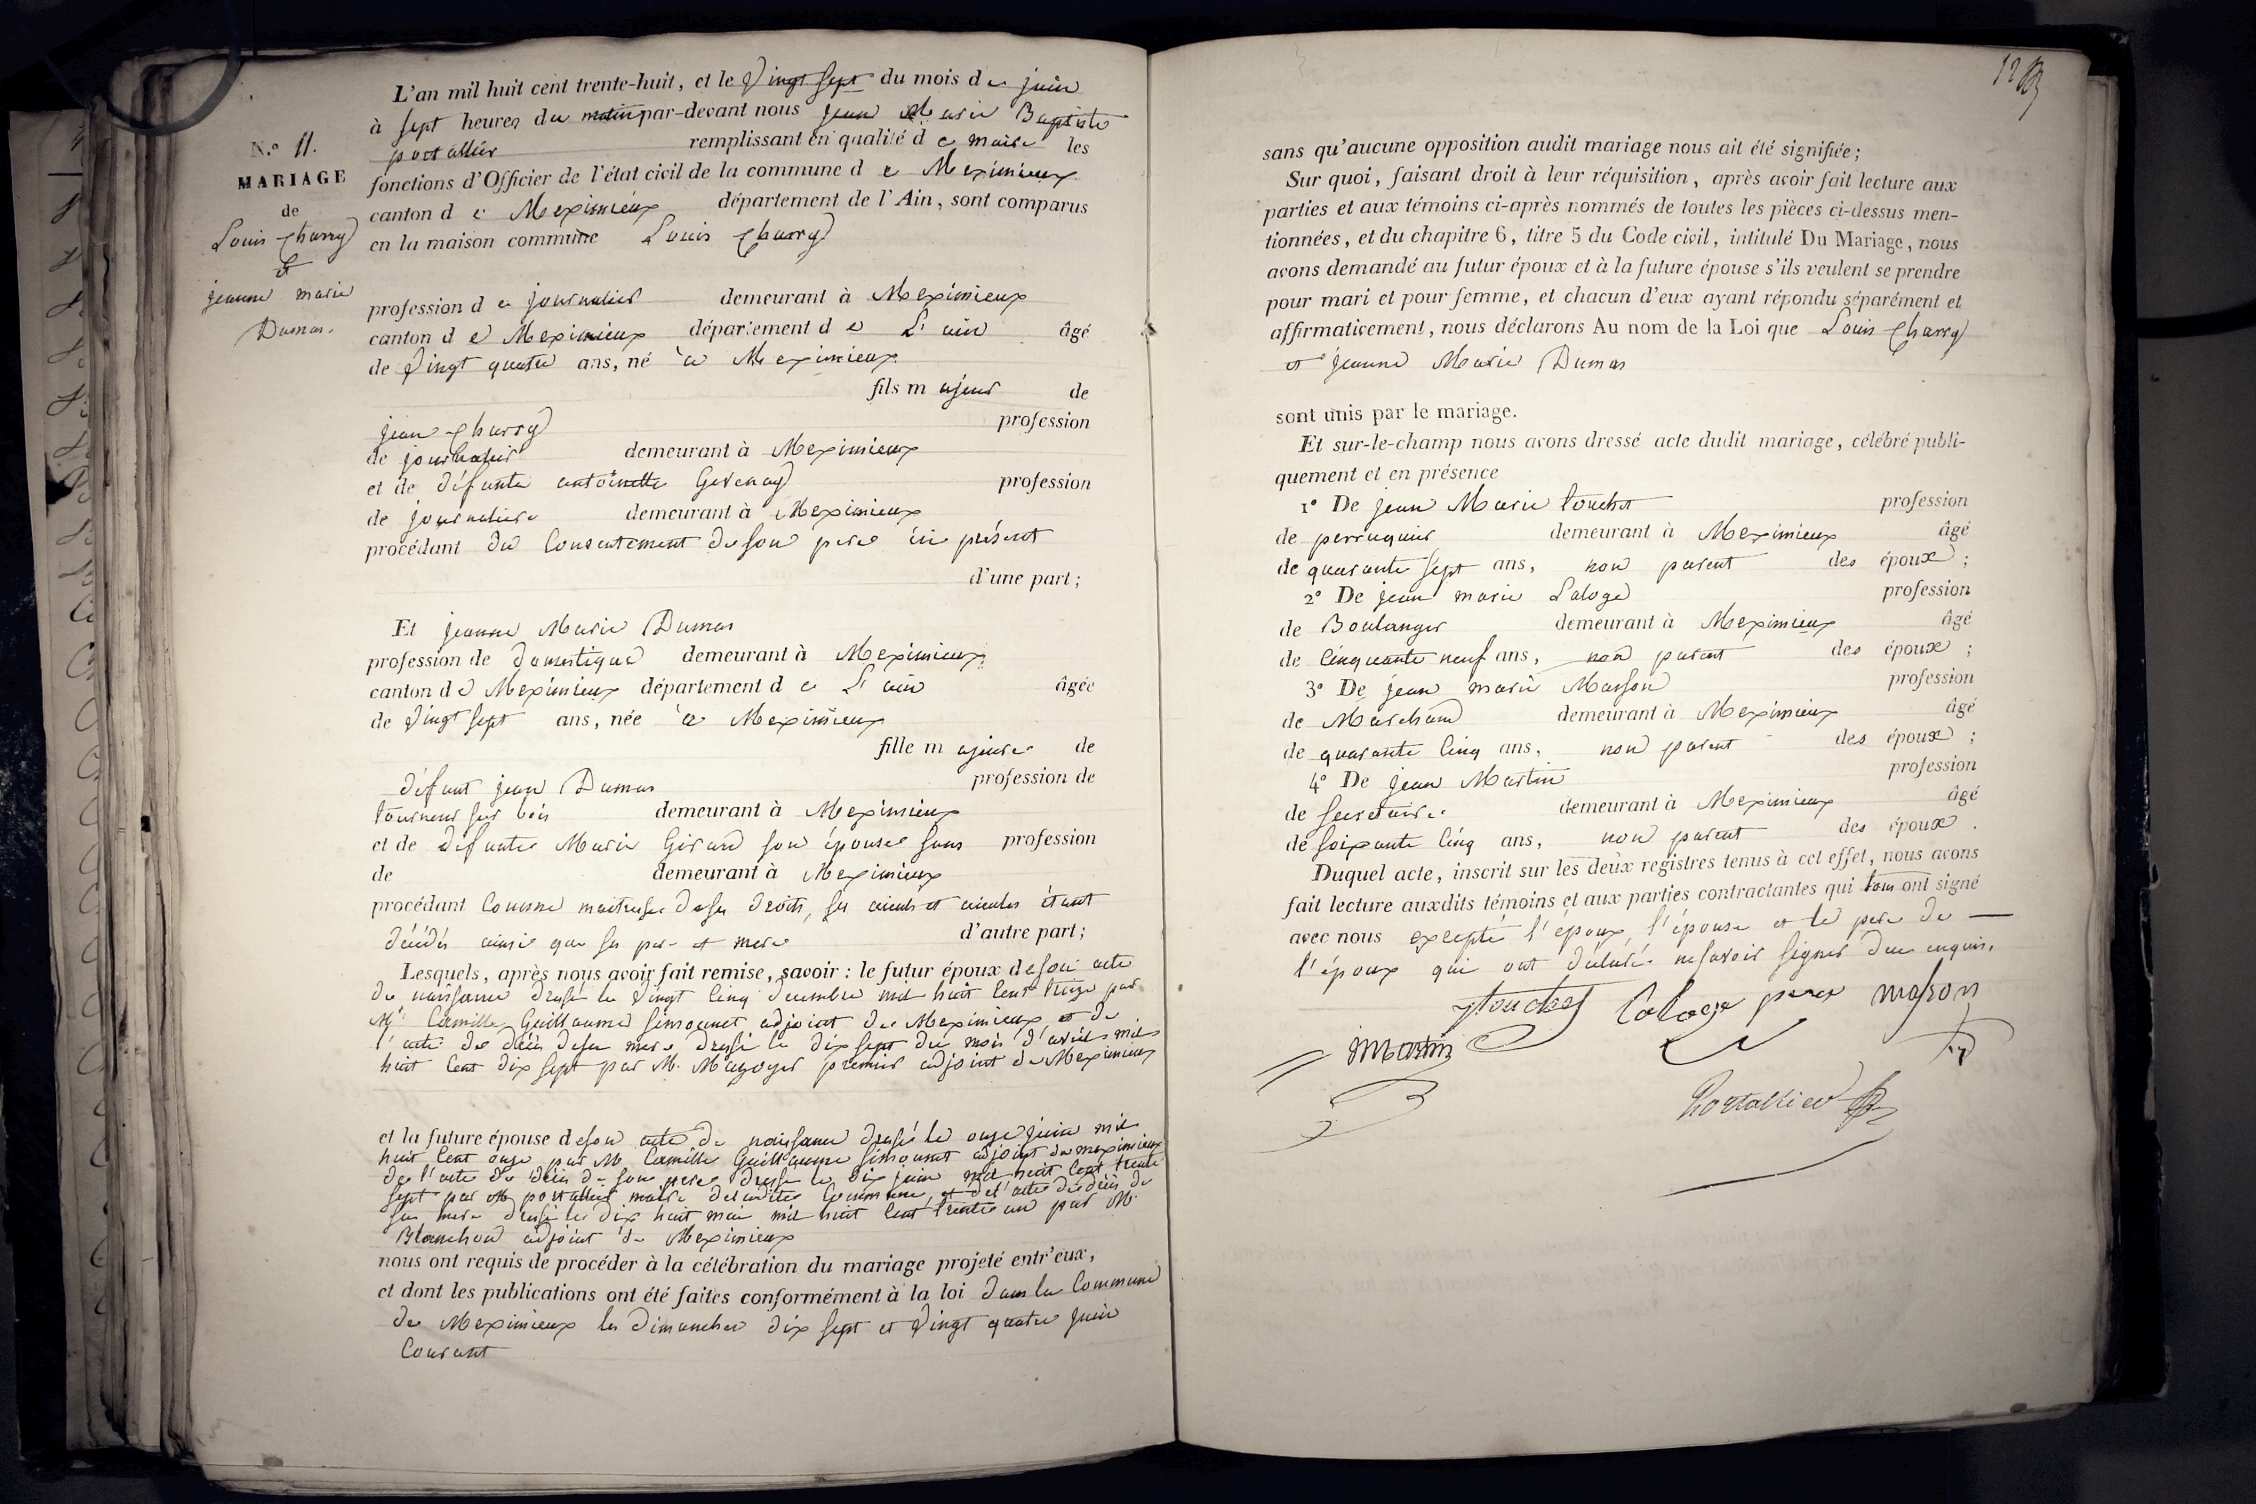 N.º 11.
MARIAGE
de
Louis Charry
et
jeanne marie
Dumas.
L'an mil huit cent trente-huit, et le Vingt sept du mois de juin
à sept heures du matin par-devant nous jean Marie Baptiste
portallier remplissant en qualité de maire les
fonctions d'Officier de l'état civil de la commune de Meximieux
canton de Meximieux département de l'Ain, sont comparus
en la maison commune Louis Charry
profession de journalier demeurant à Meximieux
canton de Meximieux département de L'ain âgé
de Vingt quatre ans, né à Meximieux
fils majeur de
jean Charry profession
de journalier demeurant à Meximieux
et de défunte antoinette profession
de journaliere demeurant à Meximieux
procédant du Consentement de son pere ici présent
d'une part;
Et jeanne Marie Dumas
profession de domestique demeurant à Meximieux
canton de Meximieux département de L'ain âgée
de Vingt sept ans, née à Meximieux
fille majeure de
défunt jean Dumas profession de
tourneur sur bois demeurant à Meximieux
et de défunte Marie Girard son épouse sans profession
de demeurant à Meximieux
procédant Comme maitresse de ses droits, ses aieuls et aieules étant
décédés ainsi que ses pere et mere d'autre part;
Lesquels, après nous avoir fait remise, savoir : le futur époux de son acte
de naissance dressé le Vingt Cinq décembre mil huit Cent treize par
Mr. Camille Guillaume simonnet adjoint de Meximieux et de
l'acte de décès de sa mere dressé le dix sept du mois d'avril mil
huit Cent dix sept par M. premier adjoint de Meximieux
et la future épouse de son acte de naissance dressé le onze juin mil
huit Cent onze par M. Camille Guillaume simonnet adjoint de meximieux
de l'acte de décès de son pere dressé le dix juin mil huit Cent trente
sept par M. portallier maire de ladite Commune, et de l'acte de décès de
sa mere dressé le dix huit mai mil huit Cent trente un par M.
Blanchon adjoint de Meximieux
nous ont requis de procéder à la célébration du mariage projeté entr'eux,
et dont les publications ont été faites conformément à la loi dans la Commune
de Meximieux les dimanches dix sept et Vingt quatre juin
Courant
sans qu'aucune opposition audit mariage nous ait été signifiée;
Sur quoi, faisant droit à leur réquisition, après avoir fait lecture aux
parties et aux témoins ci-après nommés de toutes les pièces ci-dessus men-
tionnées, et du chapitre 6, titre 5 du Code civil, intitulé Du Mariage, nous
avons demandé au futur époux et à la future épouse s'ils veulent se prendre
pour mari et pour femme, et chacun d'eux ayant répondu séparément et
affirmativement, nous déclarons Au nom de la Loi que Louis Charry
et jeanne Marie Dumas
sont unis par le mariage.
Et sur-le-champ nous avons dressé acte dudit mariage, célébré publi-
quement et en présence
1º De jean Marie touchot profession
de perruquier demeurant à Meximieux âgé
de quarante sept ans, non parent des époux;
2º De jean marie Laloge profession
de Boulanger demeurant à Meximieux âgé
de Cinquante neuf ans, non parent des époux;
3º De jean marie Masson profession
de Marchand demeurant à Meximieux âgé
de quarante Cinq ans, non parent des époux;
4º De jean Martin profession
de secretaire demeurant à Meximieux âgé
de soixante Cinq ans, non parent des époux.
Duquel acte, inscrit sur les deux registres tenus à cet effet, nous avons
fait lecture auxdits témoins et aux parties contractantes qui tous ont signé
avec nous excepté l'époux, l'épouse et le pere de
l'époux qui ont déclaré ne savoir signer de ce enquis.
touchot Laloge pere mason
martin
Portallier